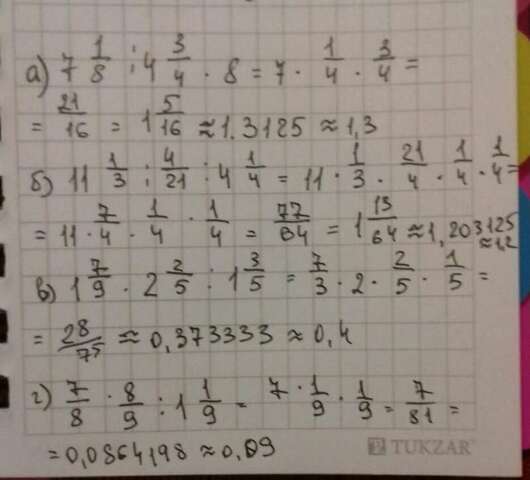 а) 7 1/8 : 4 3/4 · 8 = 7 · 1/4 · 3/4 =
= 21/16 = 1 5/16 ≈ 1.3125 ≈ 1,3
б) 11 1/3 : 4/21 : 4 1/4 = 11 · 1/3 · 21/4 · 1/4 · 1/4 =
= 11 · 7/4 · 1/4 · 1/4 = 77/64 = 1 13/64 ≈ 1,203125 ≈ 1,2
в) 1 7/9 · 2 2/5 : 1 3/5 = 7/3 · 2 · 2/5 · 1/5 =
= 28/75 ≈ 0,373333 ≈ 0,4
г) 7/8 · 8/9 : 1 1/9 = 7 · 1/9 · 1/9 = 7/81 =
= 0,0864198 ≈ 0,09
TUKZAR